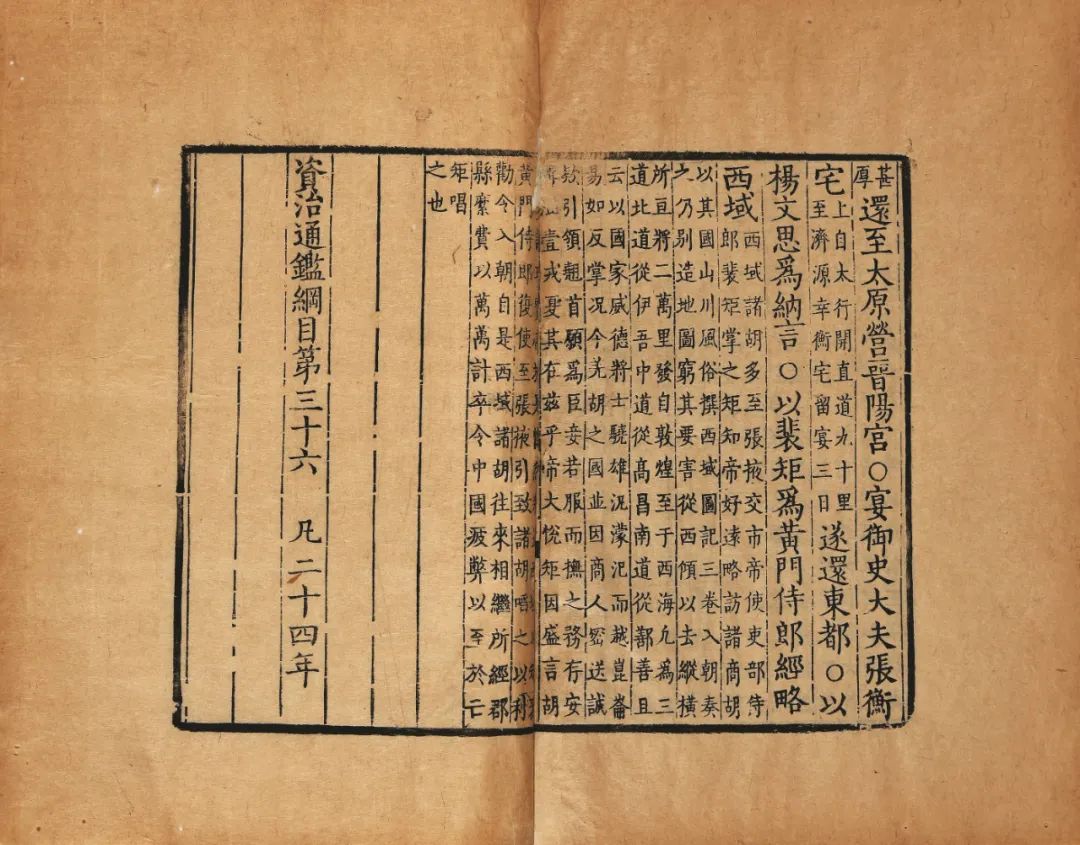 甚
厚
還至太原營晉陽宮○宴御史大夫張衡
宅
上自太行開直道九十里
至濟源幸衡宅留宴三日
遂還東都○以
楊文思爲納言○以裴矩爲黃門侍郎經略
西域
西域諸胡多至張掖交市帝使吏部侍
郎裴矩掌之矩知帝好遠略訪諸商胡
以其國山川風俗撰西域圖記三卷入朝奏
之仍别造地圖窮其要害從西傾以去縱橫
所亘將二萬里發自敦煌至于西海凢為三
道北道從伊吾中道從高昌南道從鄯善且
云以國家威德將士驍雄汎濛汜而越崑崙
易如反掌况今羌胡之國並因商人密送誠
欵引領翹首願爲臣妾若服而撫之務存安
壹戎夏其在兹乎帝大恱矩因盛言胡
黃門侍郎復使至張掖引致諸胡啗之以利
勸令入朝自是西域諸胡往來相繼所經郡
縣糜費以萬萬計卒令中國疲弊以至於亡
矩唱
之也
資治通鑑綱目第三十六 凡二十四年